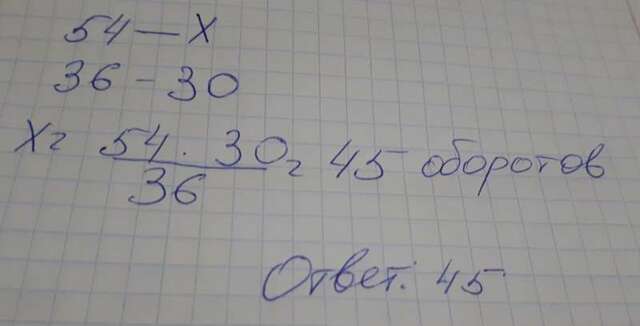 54 — х
36 - 30
х = 54 · 30 / 36 = 45 оборотов
Ответ: 45